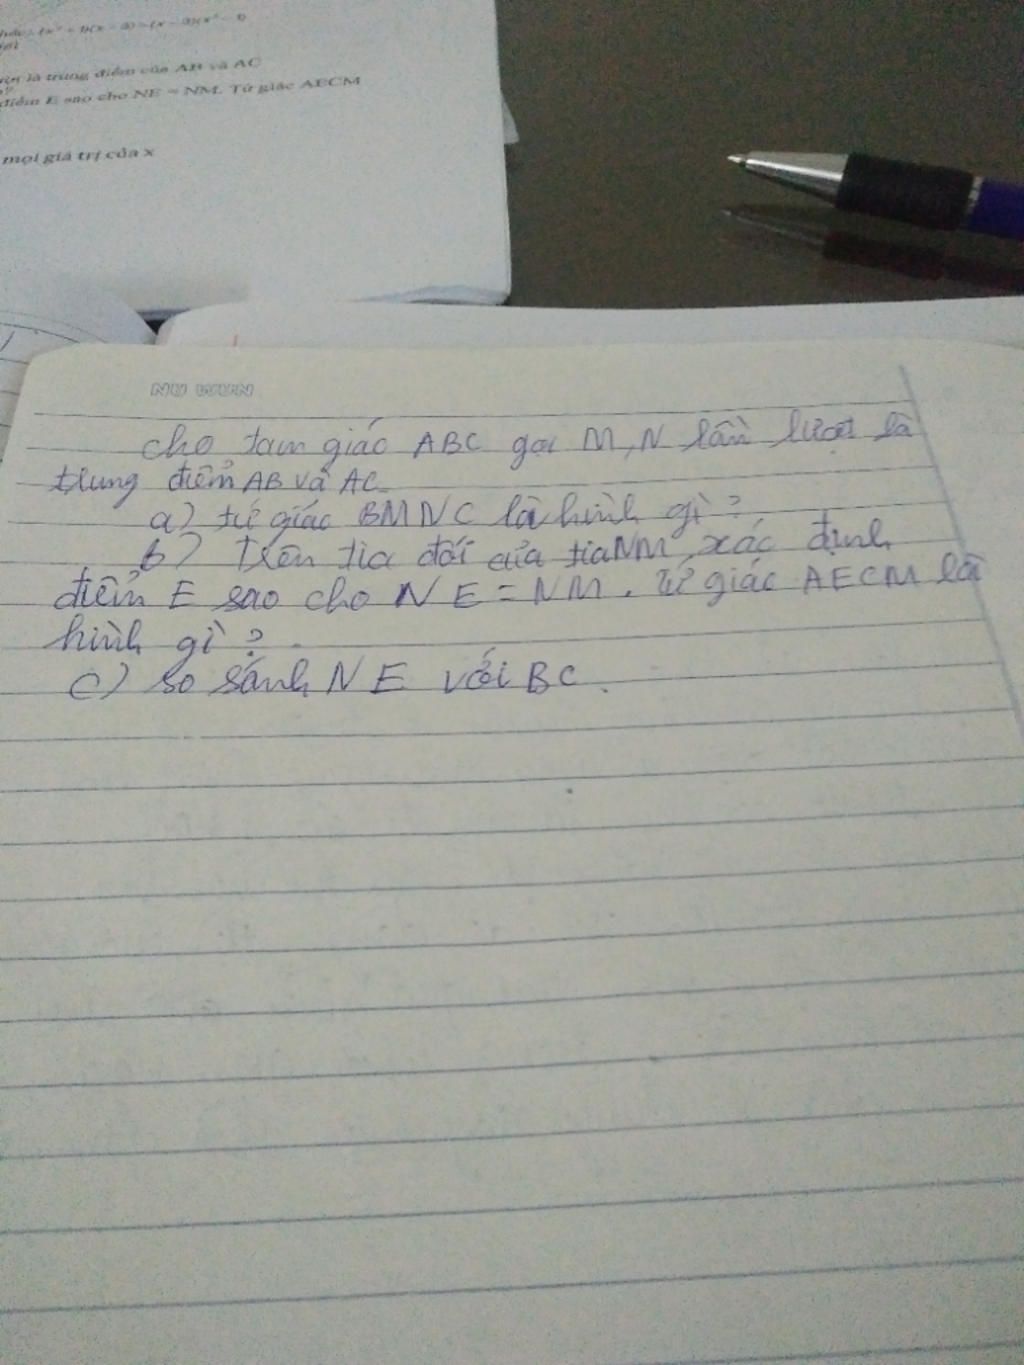 là trung điểm của AB và AC
điểm E sao cho NE = NM. Tứ giác AECM
mọi giá trị của x
NU WUN
cho tam giác ABC gọi M, N lần lượt là
trung điểm AB và AC
a) tứ giác BMNC là hình gì ?
b) Trên tia đối của tia NM, xác định
điểm E sao cho NE = NM. Tứ giác AECM là
hình gì ?
c) so sánh NE với BC.